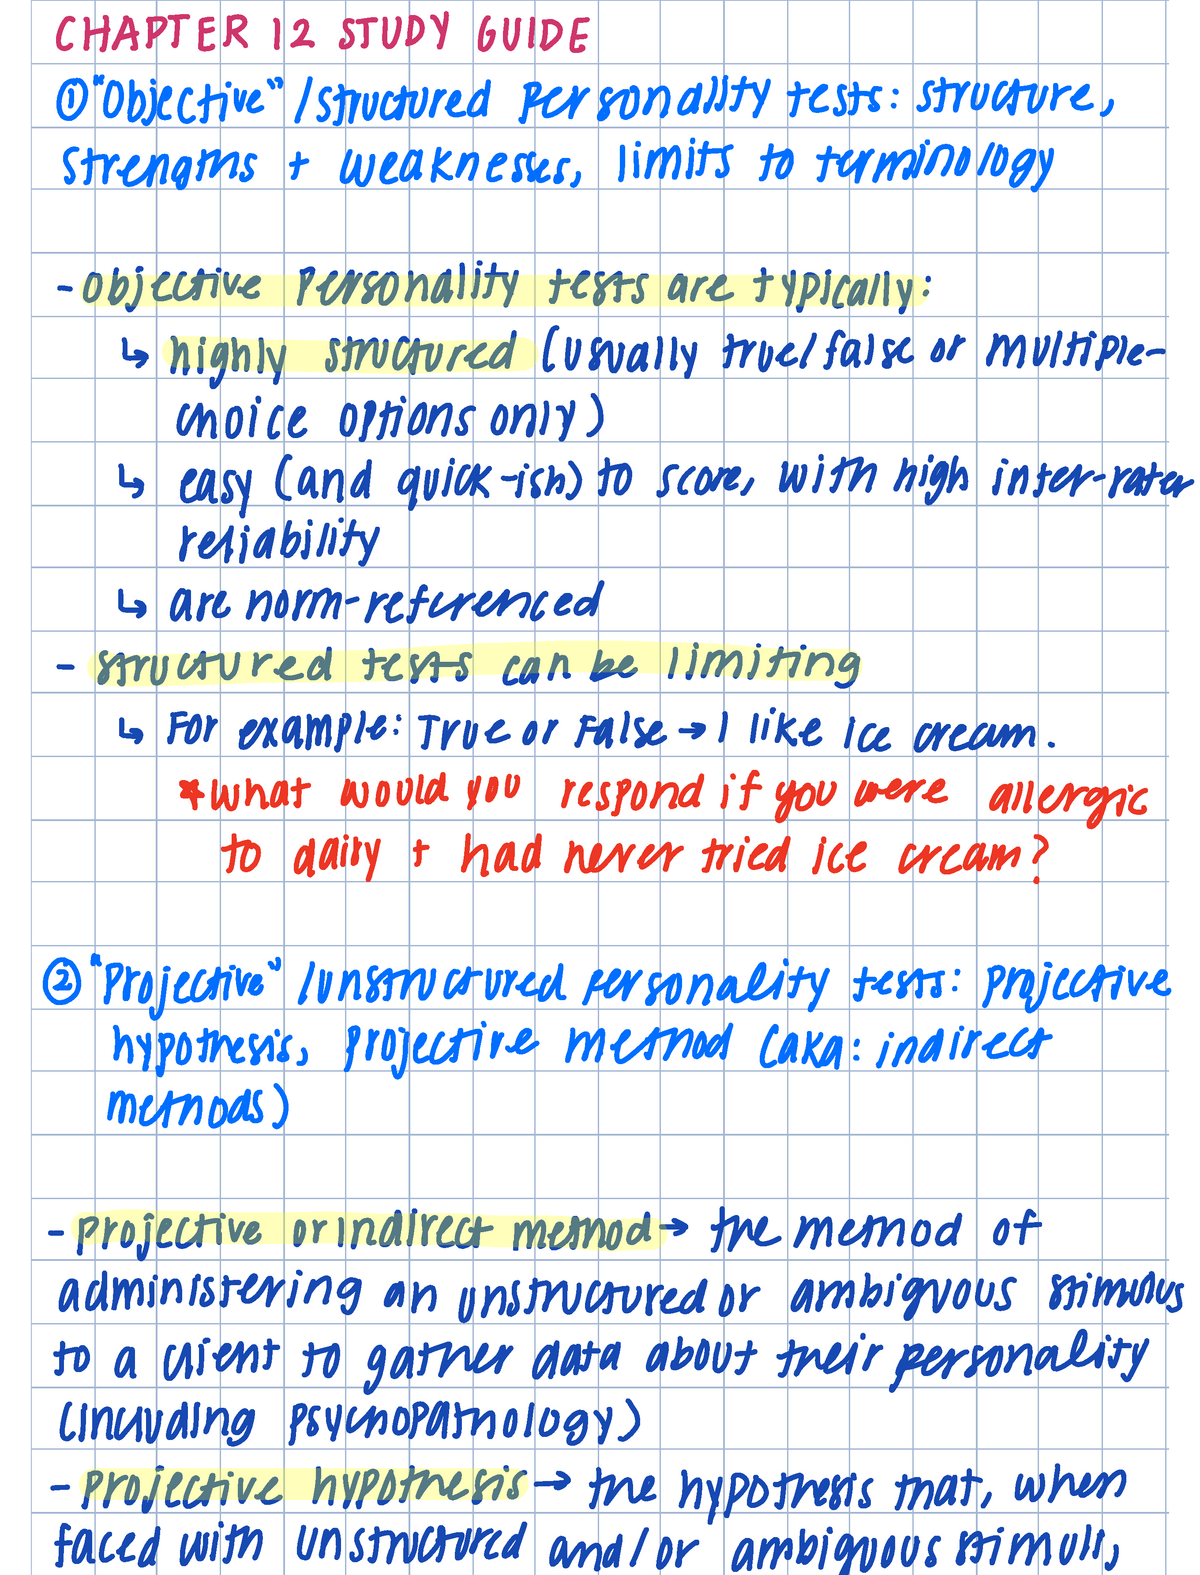 CHAPTER 12 STUDY GUIDE
① "Objective" / structured personality tests: structure,
strengths + weaknesses, limits to terminology
- objective personality tests are typically:
↳ highly structured (usually true/false or multiple-
choice options only)
↳ easy (and quick-ish) to score, with high inter-rater
reliability
↳ are norm-referenced
- structured tests can be limiting
↳ For example: True or False → I like ice cream.
*What would you respond if you were allergic
to dairy + had never tried ice cream?
② "Projective" /unstructured personality tests: projective
hypothesis, projective method (aka: indirect
methods)
- projective or indirect method → the method of
administering an unstructured or ambiguous stimulus
to a client to gather data about their personality
(including psychopathology)
- projective hypothesis → the hypothesis that, when
faced with unstructured and/or ambiguous stimuli,